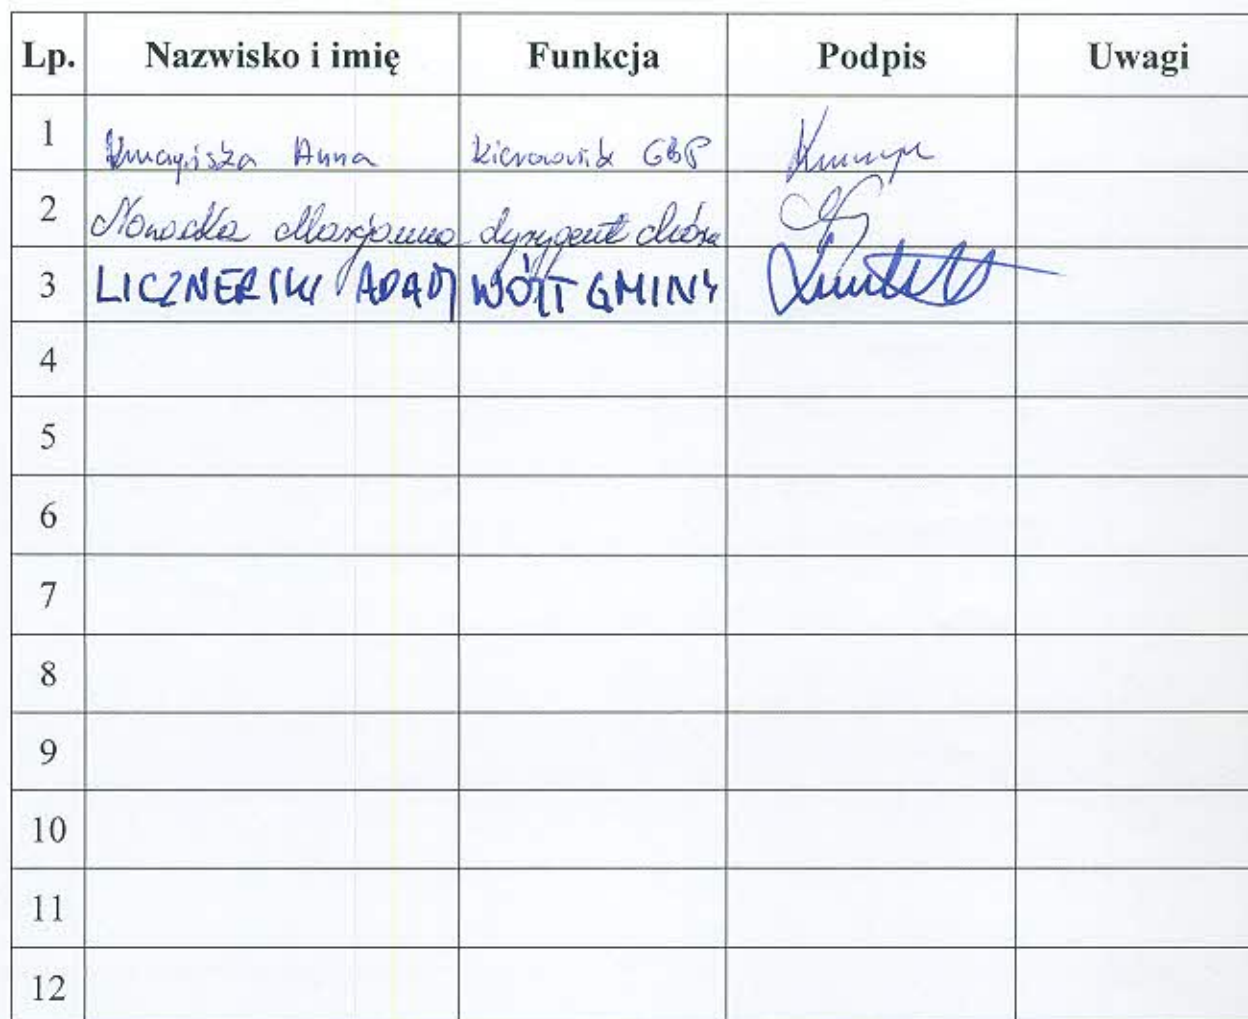 Lp. Nazwisko i imię Funkcja Podpis Uwagi
1 Anna Kierownik GBP
2 Nowacka Marjanna dyrygent chóru
3 LICZNERSKI ADAM WÓJT GMINY
4
5
6
7
8
9
10
11
12